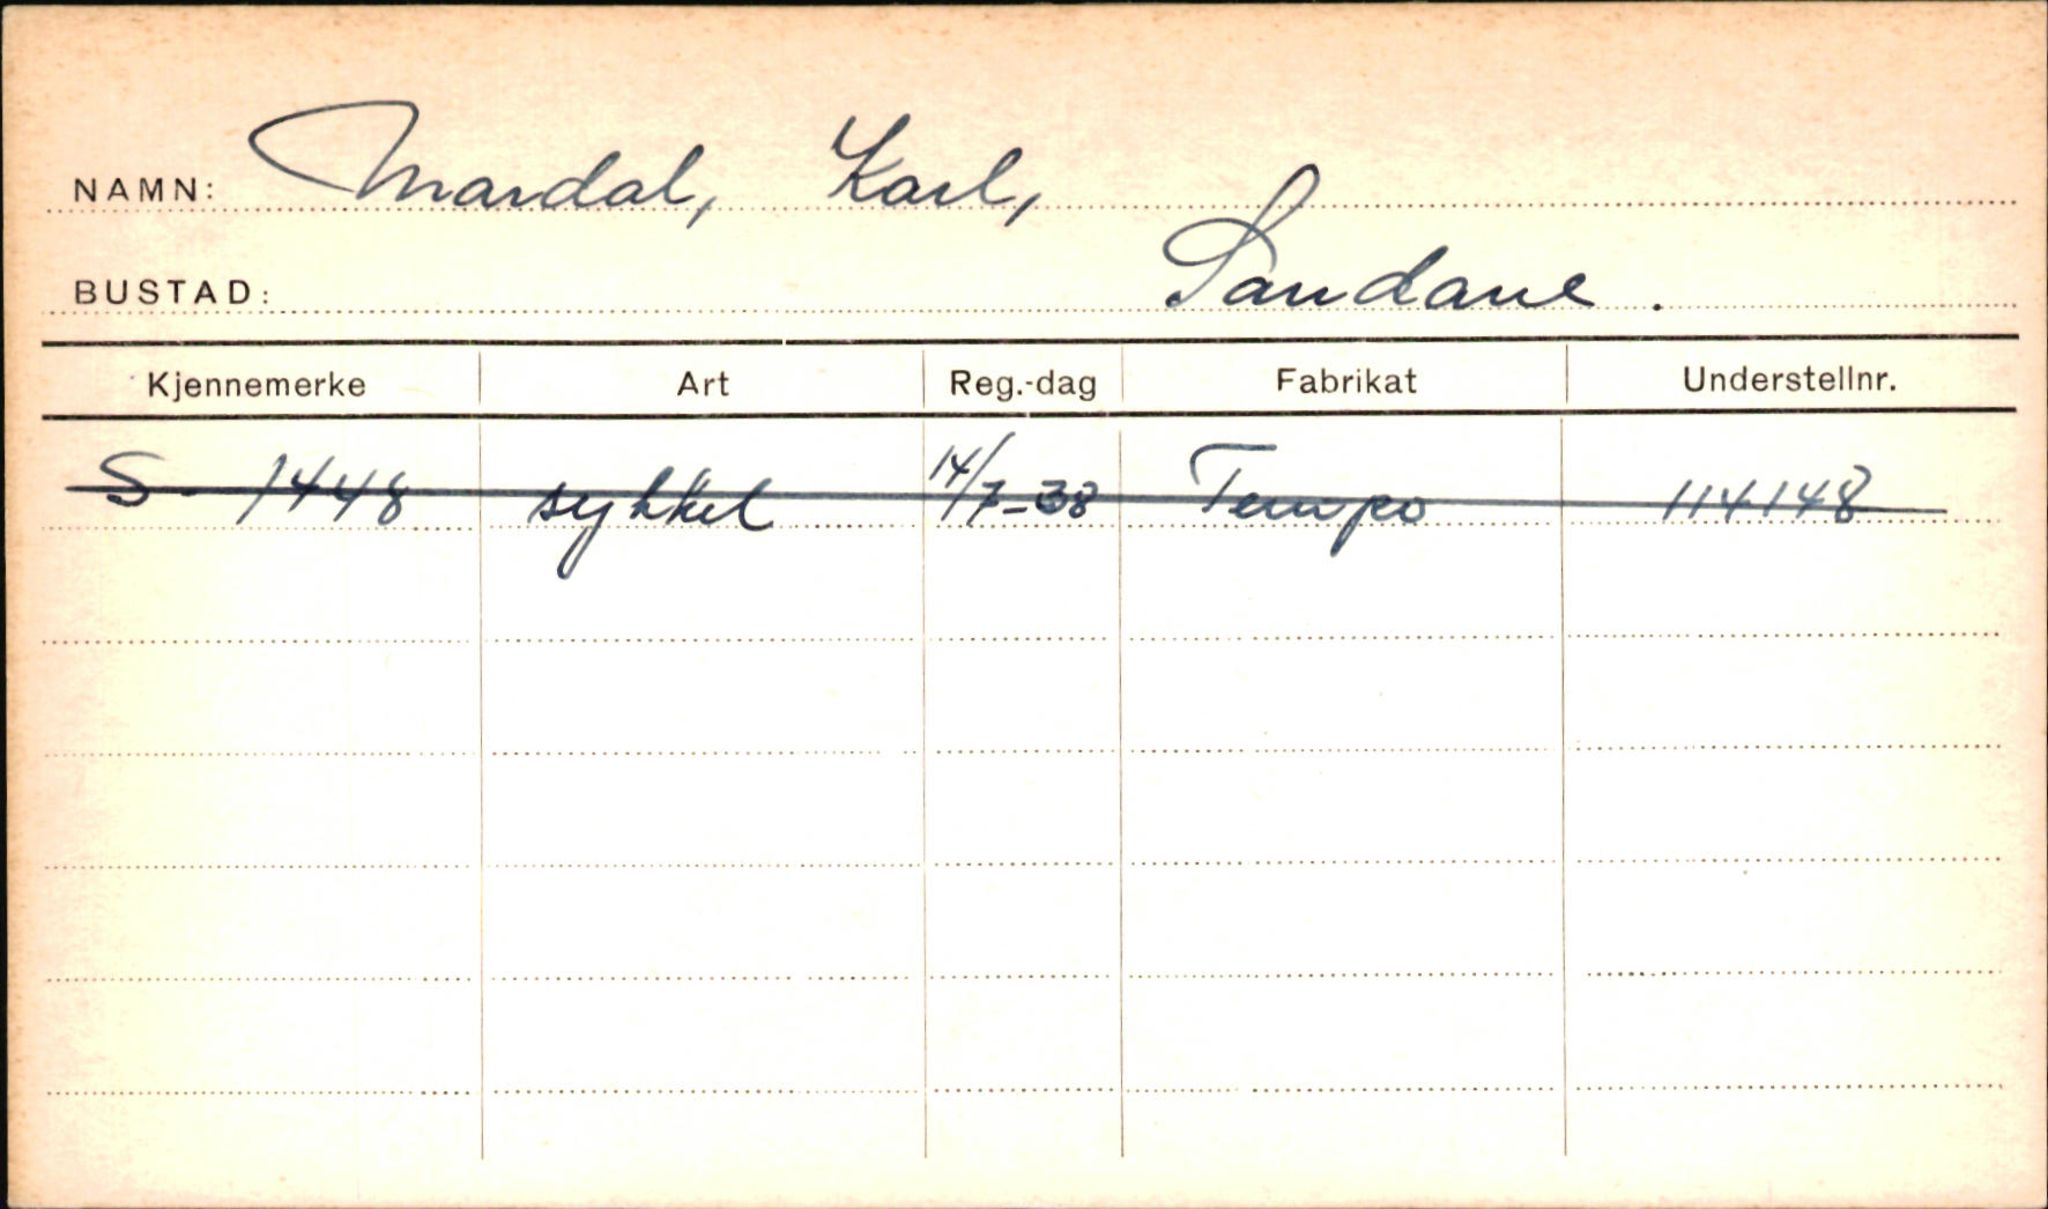 NAMN: Mardal, Karl,
BUSTAD: Sandane.
Kjennemerke Art Reg.-dag Fabrikat Understellnr.
S - 1448 sykkel 14/7-38 Tempo 114148